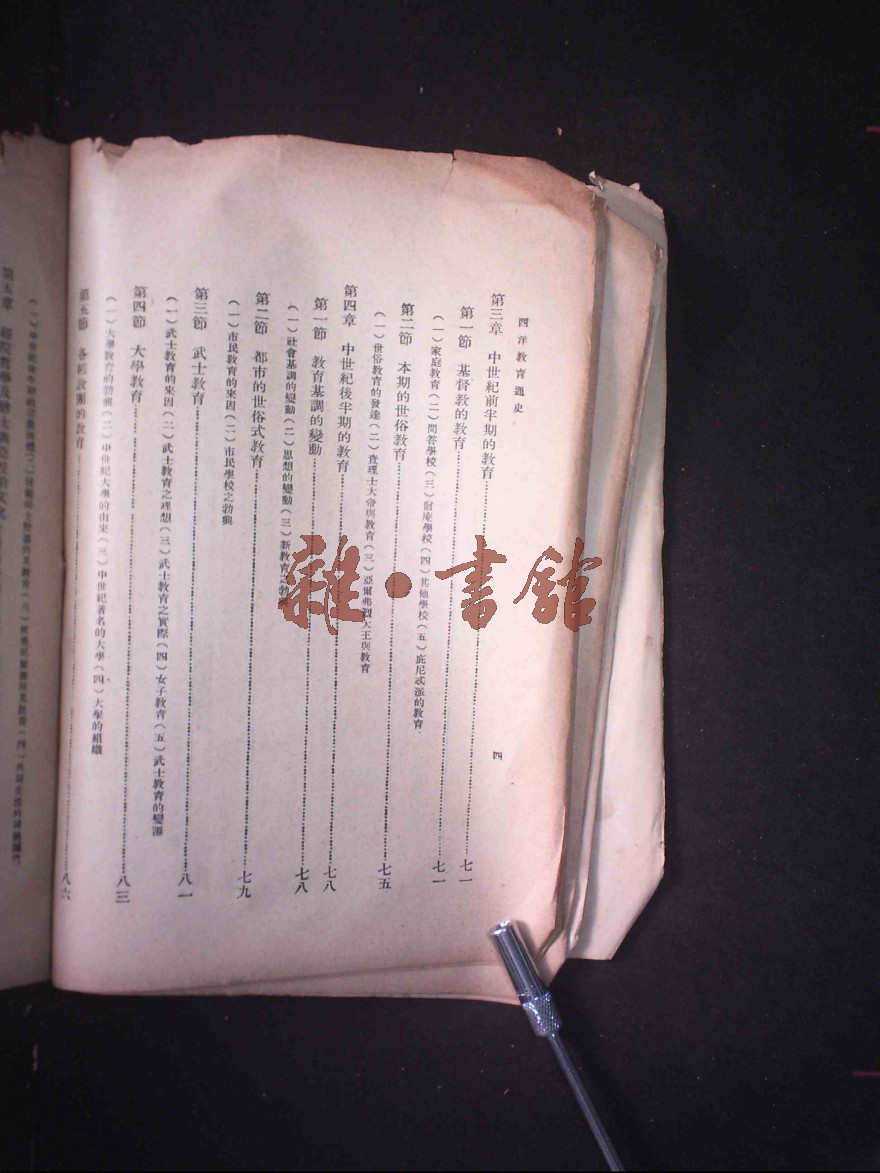 西洋教育通史
四
第三章　中世紀前半期的教育……七一
第一節　基督教的教育……七一
（一）家庭教育（二）問答學校（三）僧庵學校（四）其他學校（五）庇尼忒派的教育
第二節　本期的世俗教育……七五
（一）世俗教育的發達（二）查理士大帝與教育（三）亞爾弗烈大王與教育
第四章　中世紀後半期的教育……七八
第一節　教育基調的變動……七八
（一）社會基調的變動（二）思想的變動（三）新教育之勃興
第二節　都市的世俗式教育……七九
（一）市民教育的來因（二）市民學校之勃興
第三節　武士教育……八一
（一）武士教育的來因（二）武士教育之理想（三）武士教育之實際（四）女子教育（五）武士教育的變遷
第四節　大學教育……八三
（一）大學教育的勃興（二）中世紀大學的由來（三）中世紀著名的大學（四）大學的組織
第五節　各種教團的教育……八六
第五章
雜·書館